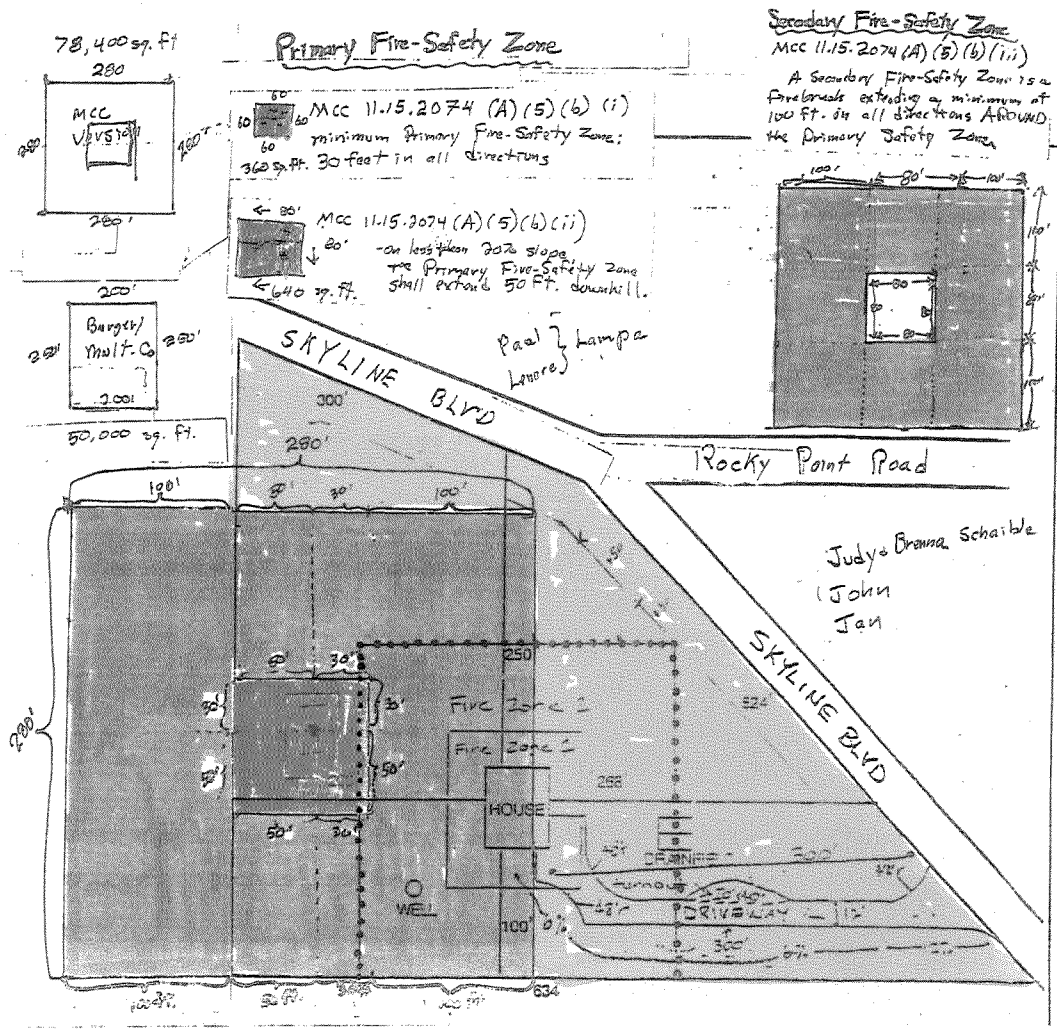 78,400 sq. ft
280
MCC
280
280'
Primary Fire-Safety Zone
60'
60
60
60
360 sq.ft.
MCC 11.15.2074 (A) (5) (b) (i)
minimum Primary Fire-Safety Zone:
30 feet in all directions
80'
80'
640 sq. ft.
MCC 11.15.2074 (A)(5)(b)(ii)
-on less than 20% slope
the Primary Fire-Safety Zone
shall extend 50 ft. downhill.
Secondary Fire-Safety Zone
MCC 11.15.2074 (A) (5) (b) (iii)
A Secondary Fire-Safety Zone is a
firebreak extending a minimum of
100 ft. in all directions AROUND
the Primary Safety Zone.
100'
80'
100'
100'
80'
100'
80
80
80
80
200'
Burger/
Mult. Co
250'
250'
200'
50,000 sq. ft.
Paul } Lampa
Lenore }
SKYLINE BLVD
300'
Rocky Point Road
Judy & Brenna Schaible
John
Jan
SKYLINE BLVD
280'
100'
30'
100'
280'
250
30'
30'
50'
50'
50'
30'
Fire Zone 2
Fire Zone 1
HOUSE
268
WELL
100'
0%
turnout
300'
DRIVEWAY
12'
300'
100 ft.
634